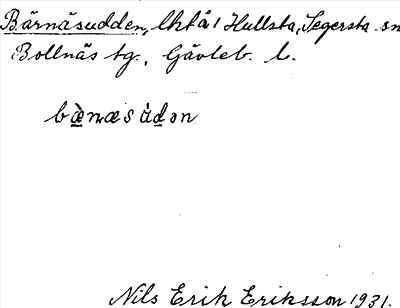 Bärnäsudden, lkt å / Hullsta, Segersta sn
Bollnäs tg., Gävleb. l.
bæ̀næsùdən
Nils Erik Eriksson 1931.